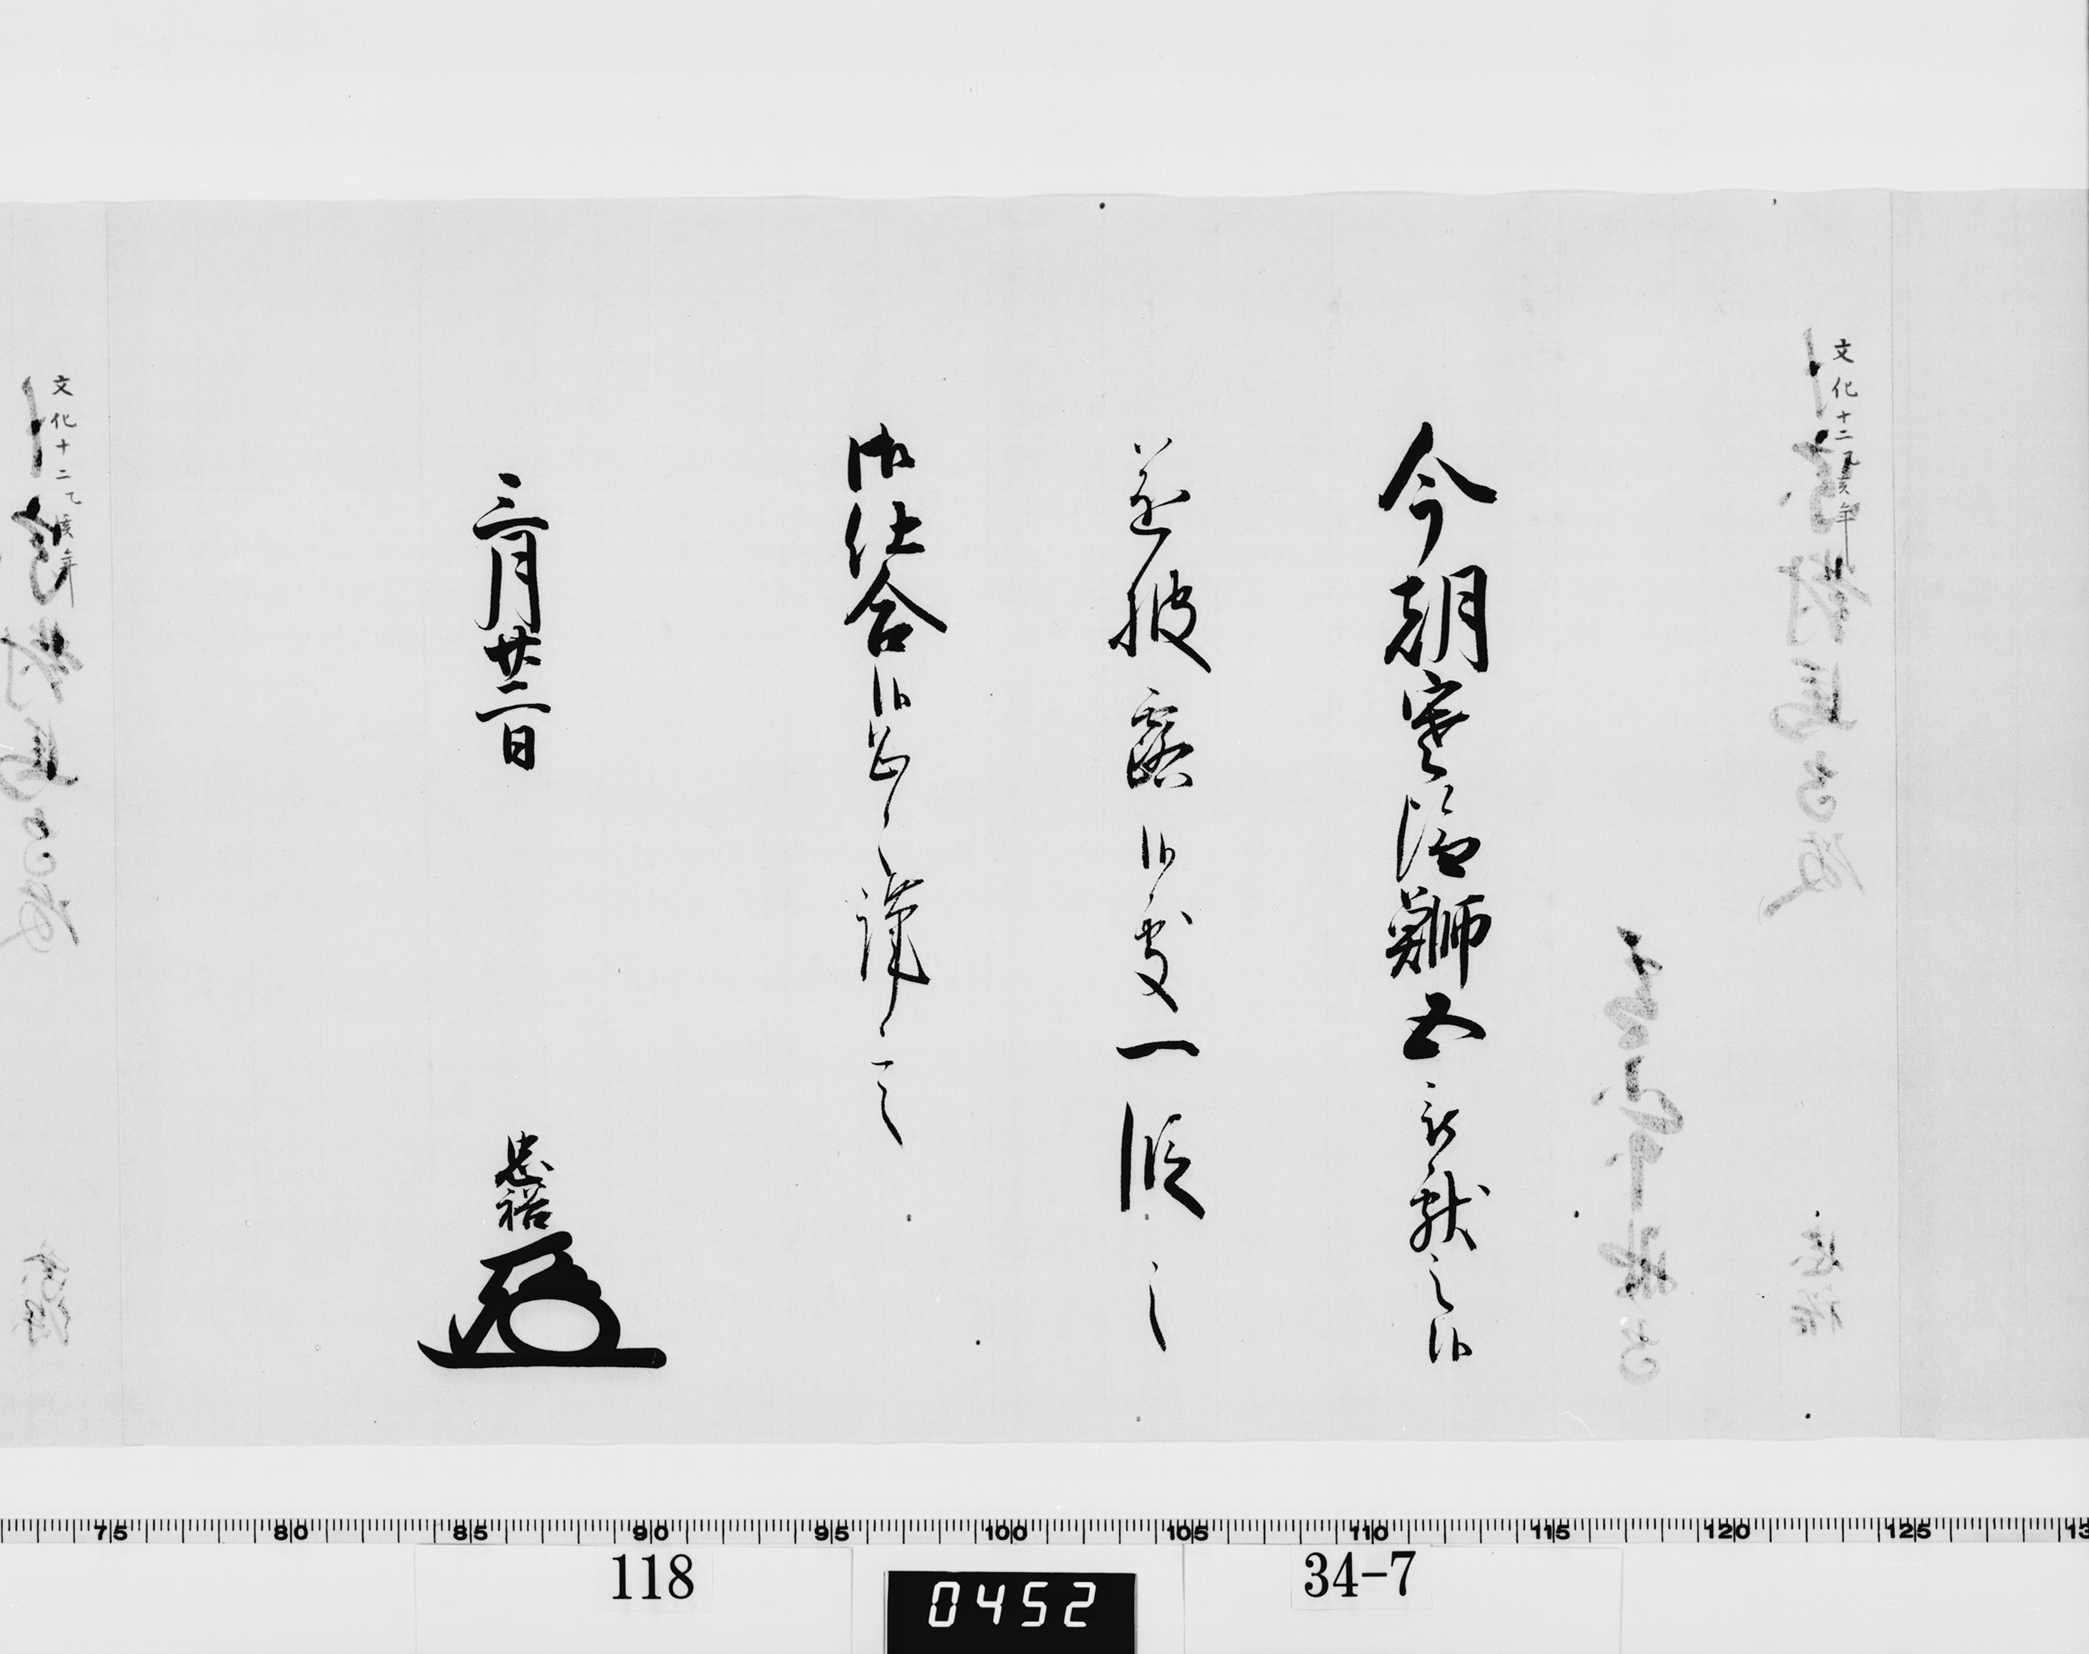 文化十二乙亥年
今朝寒塩鰤五被献之候
遂披露候処一段之
御仕合候恐々謹言
三月廿二日
忠裕
文化十二乙亥年
75 80 85 90 95 100 105 110 115 120 125 13
118
0452
34-7